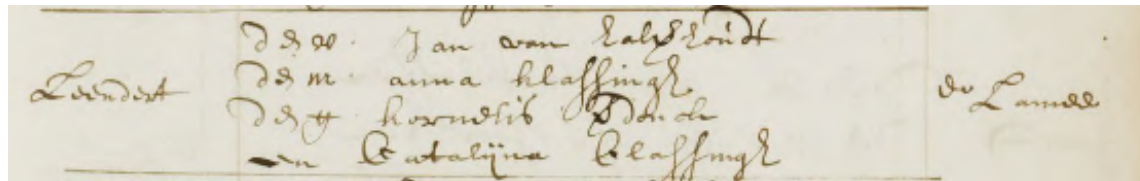 Leendert
de v. Jan van kalfhoudt
de m anna klassingh
de g kornelis donck
en Catalijna Classingh
de Lannee